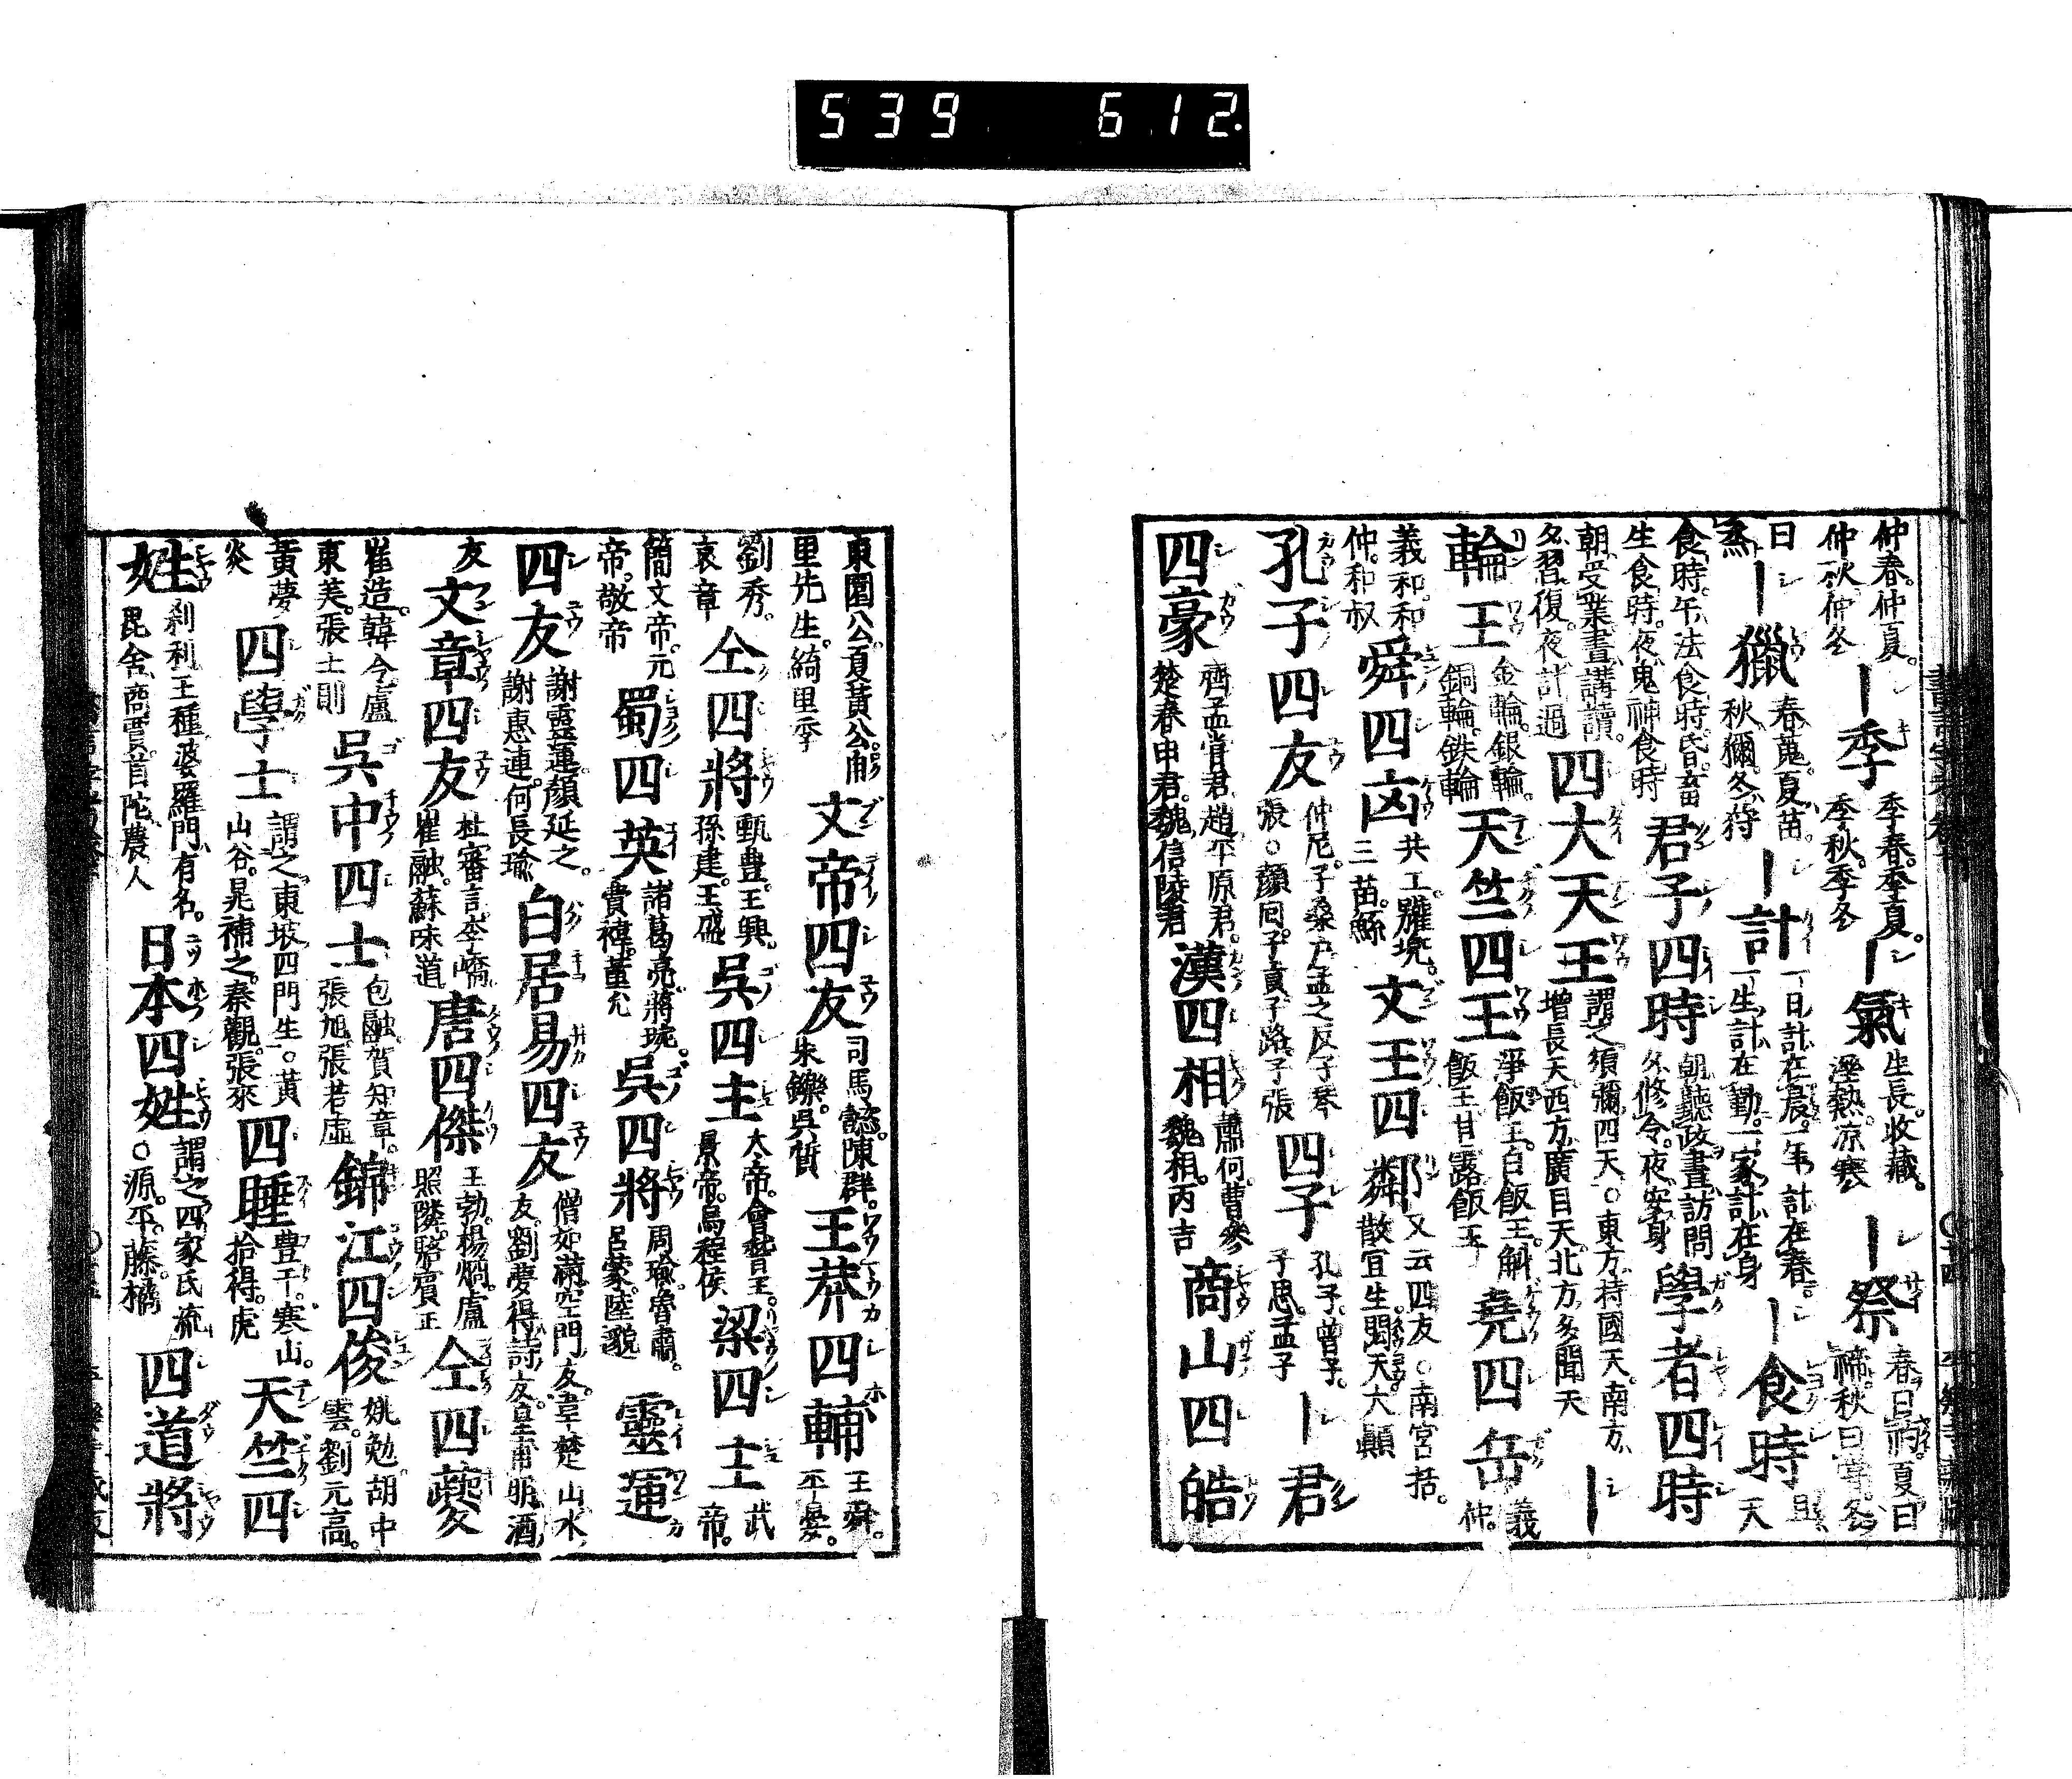 539 612
仲春。仲夏。
仲秋。仲冬
｜季
季春。季夏。
季秋。季冬
｜氣
生長。收藏。
溼熱。凉寒
｜祭
春曰礿。夏曰
禘。秋曰嘗。冬
曰
烝
｜獵
春蒐。夏苗。
秋獮。冬狩
｜計
一日計在晨。一年計在春。
一生計在勤。一家計在身
｜食時
旦、天
食時。午、法食時。昏、畜
生食時。夜、鬼神食時
君子四時
朝聽政。晝訪問
夕修令。夜安身
學者四時
朝受業。晝講讀。
夕習復。夜計過
四大天王
謂之須彌四天。○東方、持國天。南方、
增長天。西方、廣目天。北方、多聞天
｜
輪王
金輪。銀輪。
銅輪。鉄輪
天竺四王
淨飯王。白飯王。斛
飯王。甘露飯王
堯四岳
義
仲。
義和。和
仲。和叔
舜四凶
共工。驩兜。
三苗。鯀
文王四鄰
又云四友○南宮括。
散宜生。閎夭。大顚
孔子四友
仲尼。子桑戸。孟之反。子琴
張。○顏回。子貢。子路。子張
四子
孔子。曾子。
子思。孟子
｜君
四豪
齊孟甞君。趙平原君。
楚春申君。魏信陵君
漢四相
蕭何。曹參
魏相。丙吉
商山四皓
東園公。夏黃公。甪
里先生。綺里季
文帝四友
司馬懿。陳群。
朱鑠。吳質
王莽四輔
王舜。
平晏。
劉秀。
哀章
仝四將
甄豊。王興。
孫建。王盛
吳四主
大帝。會稽王。
景帝。烏程侯
梁四主
武
帝。
簡文帝。元
帝。敬帝
蜀四英
諸葛亮。蔣琬。
費禕。董允
吳四將
周瑜。魯肅。
呂蒙。陸遜
靈運
四友
謝靈運。顏延之。
謝惠連。何長瑜
白居易四友
僧如滿、空門友。韋楚、山水
友。劉夢得、詩友。皇甫明、酒
友
文章四友
杜審言。李嶠。
崔融。蘇味道
唐四傑
王勃。楊烱。盧
照隣。駱賓王
仝四夔
崔造。韓會。盧
東美。張士則
吳中四士
包融。賀知章。
張旭。張若虛
錦江四俊
姚勉。胡中
雲。劉元高。
黃夢
炎
四學士
謂之東坡四門生。○黃
山谷。晁補之。秦觀。張來
四睡
豊干。寒山。
拾得。虎
天竺四
姓
刹利、王種。婆羅門、有名。
毘舍、商賈。首陀、農人
日本四姓
謂之四家氏流
○源。平。藤。橘
四道將